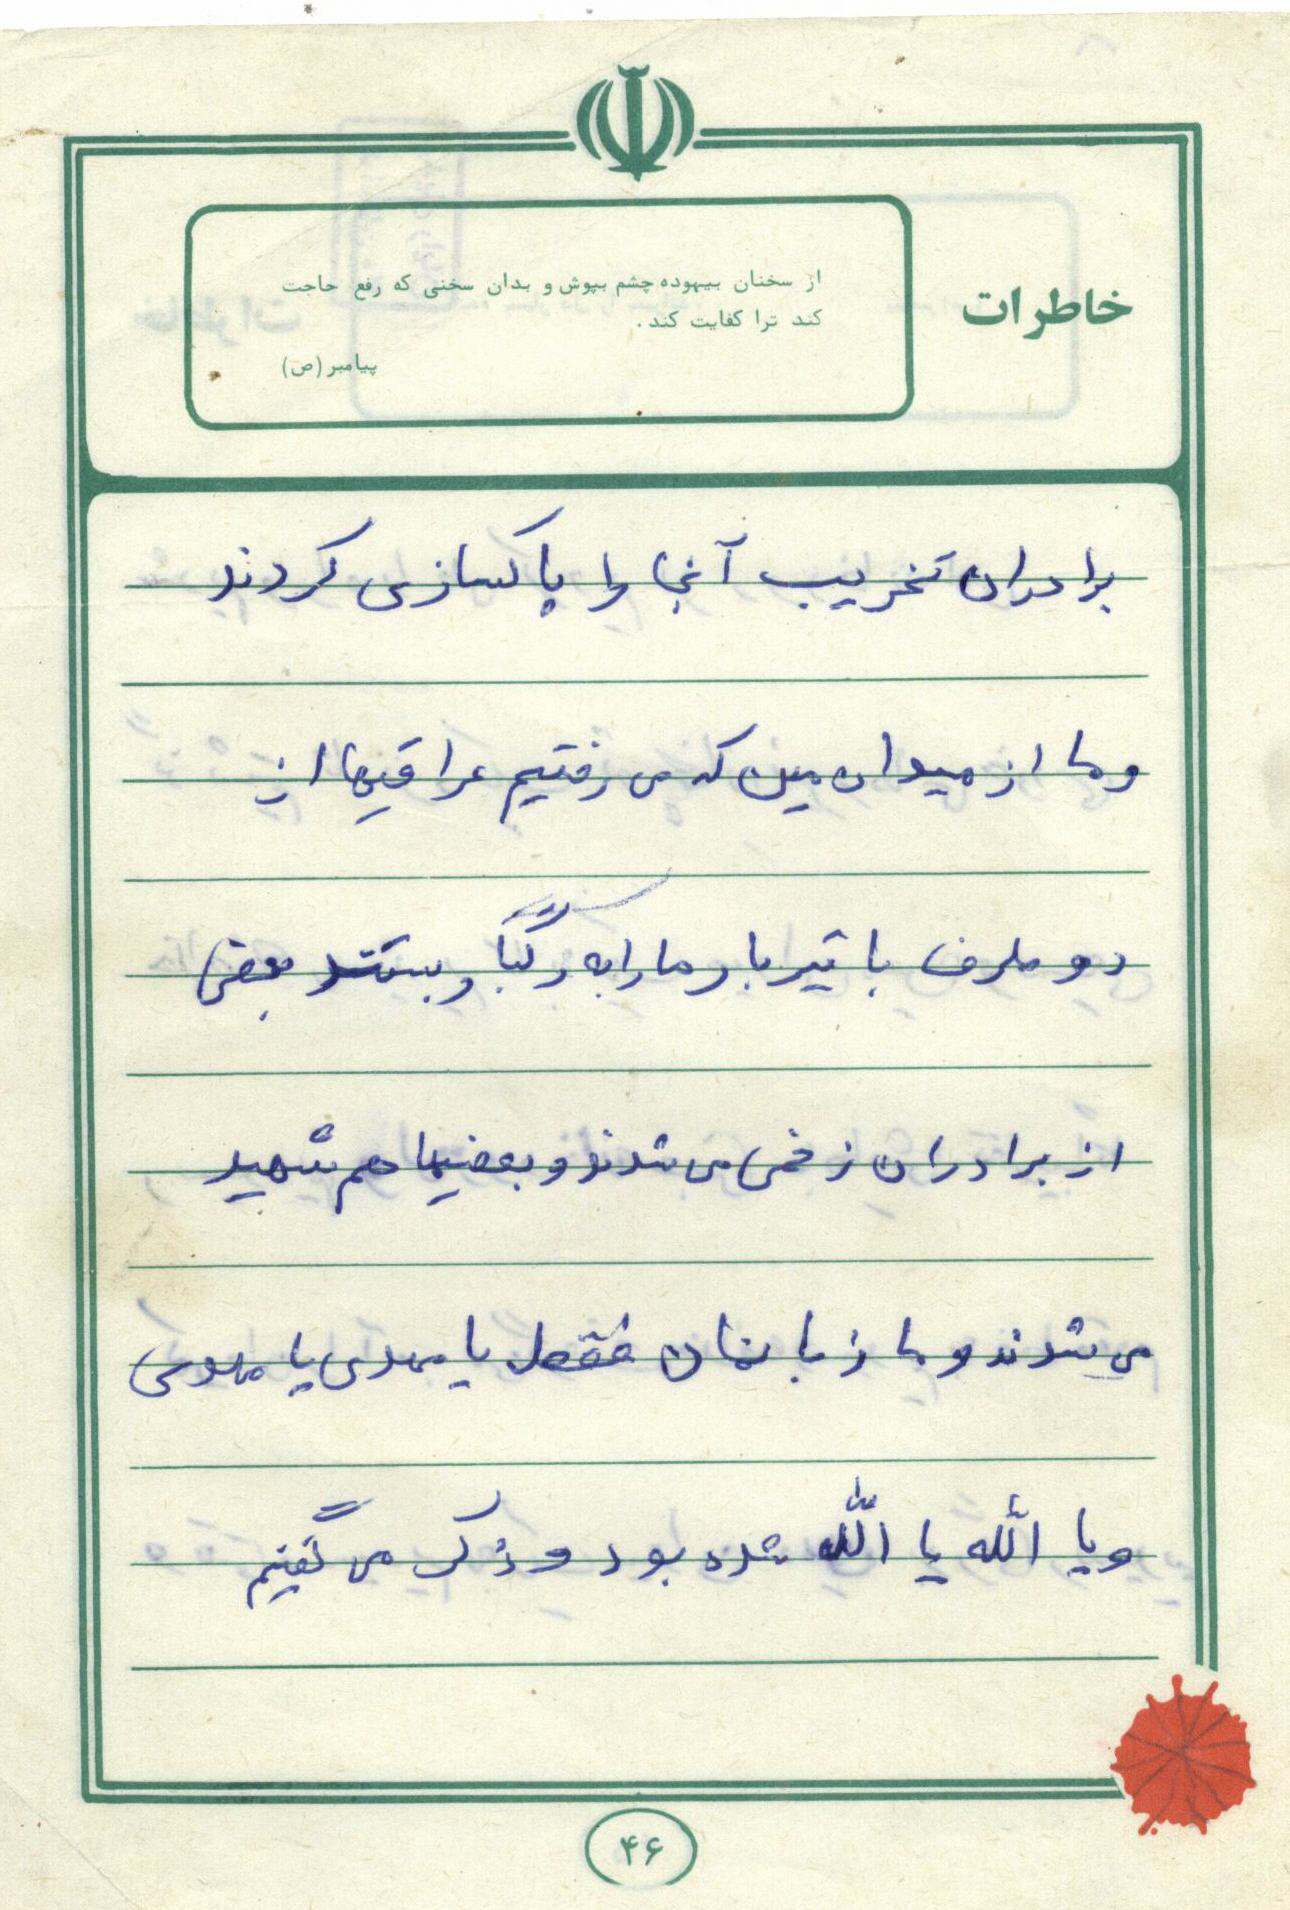 خاطرات
از سخنان بیهوده چشم بپوش و بدان سخنی که رفع حاجت
کند ترا کفایت کند.
پیامبر (ص)
برادران تخریب آنجا را پاکسازی کردند
و ما از میدان مین که می رفتیم عراقیها از
دو طرف با تیربار ما را به رگبار بستند بعضی
از برادران زخمی می شدند و بعضیها هم شهید
می شدند و ما زبانمان فقط یا مهدی یا مهدی
و یا الله یا الله شده بود و ذکر می گفتیم
۴۶